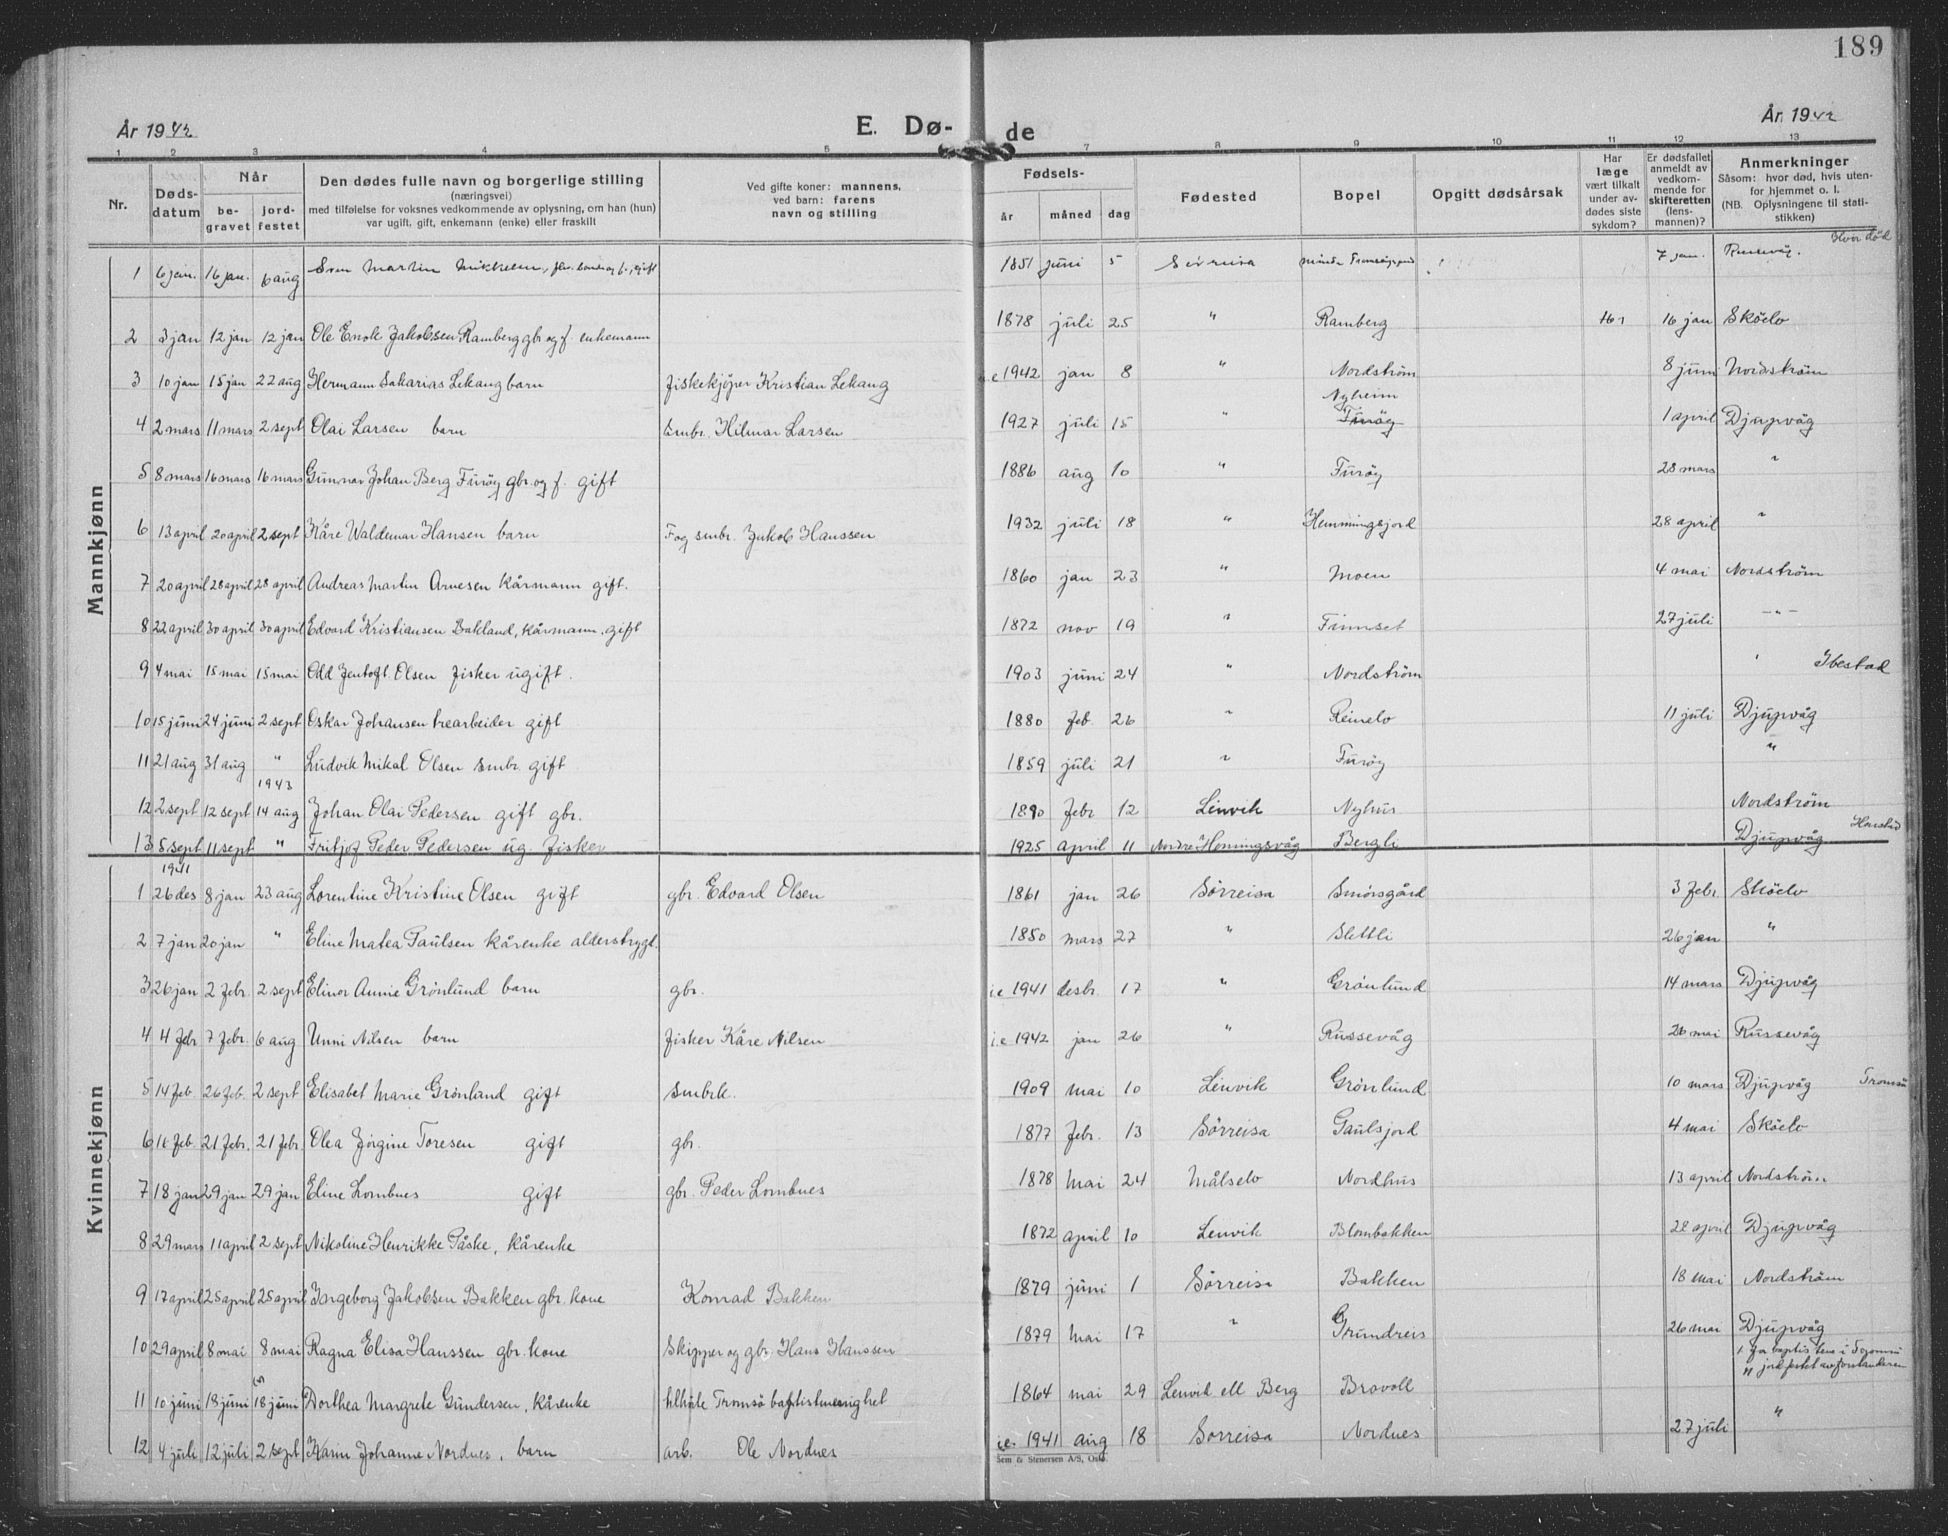 189
År 1942
E. Dø-
de
År 1942
1 2 3 4 5 7 8 9 10 11 12 13
Nr.
Døds-
datum
Når
be-
gravet
jord-
festet
Den dødes fulle navn og borgerlige stilling
(næringsvei)
med tilføielse for voksnes vedkommende av oplysning, om han (hun)
var ugift, gift, enkemann (enke) eller fraskilt
Ved gifte koner: mannens,
ved barn: farens
navn og stilling
Fødsels-
år måned dag
Fødested
Bopel
Opgitt dødsårsak
Har
læge
vært tilkalt
under av-
dødes siste
sykdom?
Er dødsfallet
anmeldt av
vedkom-
mende for
skifteretten
(lens-
mannen)?
Anmerkninger
Såsom: hvor død, hvis uten-
for hjemmet o. l.
(NB. Oplysningene til stati-
stikken)
Hvor død
Mannkjønn
1 6 jan. 16 jan. 6 aug Martin Mikkelsen, gift 1851 juni 5 Sörreisa 7 jan. Russevåg.
2 3 jan 12 jan 12 jan Ole Enok Jakobsen Ramberg gbr og f. enkemann 1878 juli 25 " Ramberg 16 jan Sköelv
3 10 jan 15 jan 22 aug Hermann Sakarias Lekang barn fiskekjöper Kristian Lekang i.e 1942 jan 8 " Nordström 8 juni Nordström
4 2 mars 11 mars 2 sept Olai Larsen barn Smbr. Hilmar Larsen 1927 juli 15 " Nyheim Furöy 1 april Djupvåg
5 8 mars 16 mars 16 mars Gunnar Johan Berg Furöy gbr. og f. gift 1886 aug 10 " Furöy 28 mars "
6 13 april 20 april 2 sept Kåre Waldemar Hansen barn F og smbr. Jakob Hanssen 1932 juli 18 " Hemmingsjord 28 april "
7 20 april 28 april 28 april Andreas Martin Arnesen kårmann gift. 1860 jan 23 " Moen 4 mai Nordström
8 22 april 30 april 30 april Edvard Kristiansen Bakland, kårmann, gift 1872 nov 19 " Finnset 27 juli -"-
9 4 mai 15 mai 15 mai Odd Jentoft Olsen fisker ugift. 1903 juni 24 " Nordström ' Ibestad
10 15 juni 24 juni 2 sept Oskar Johansen trearbeider gift 1880 feb. 26 " Reinelv 11 juli Djupvåg
11 21 aug 31 aug " Ludvik Mikal Olsen smbr. gift 1859 juli 21 " Furöy "
1943
12 2 sept 12 sept 14 aug Johan Olai Pedersen gift gbr. 1890 febr 12 Lenvik Nyhus Nordström
13 5 sept 11 sept " Fritjof Peder Pedersen ug. fisker 1925 april 11 Nordre Honningsvåg Bergli Djupvåg Harstad
Kvinnekjønn
1941
1 26 des 8 jan 23 aug Lorentine Kristine Olsen gift gbr. Edvard Olsen 1861 jan 26 Sörreisa Smörsgård 3 febr. Sköelv
2 7 jan 20 jan " Eline Matea Paulsen kårenke alderstrygt. 1850 mars 27 " Slettli 26 jan "
3 26 jan 2 febr. 2 sept Elinor Annie Grönlund barn gbr. i.e 1941 desbr. 17 " Grönlund 14 mars Djupvåg
4 4 febr 7 febr. 6 aug Unni Nilsen barn fisker Kåre Nilsen i.e 1942 jan 26 " Russevåg 26 mai Russevåg
5 14 feb. 26 feb. 2 sept Elisabet Marie Grönland gift smbrk. 1909 mai 10 Lenvik Grönlund 10 mars Djupvåg Tromsö
6 16 feb. 21 febr. 21 febr. Olea Jörgine Toresen gift gbr. 1877 febr. 13 Sörreisa Gaulsjord 4 mai Sköelv
7 18 jan 29 jan 29 jan Eline Lombnes gift gbr. Peder Lombnes 1878 mai 24 Målselv Nordhus 13 april Nordström
8 29 mars 11 april 2 sept Nikoline Henrikke Påske, kårenke 1872 april 10 Lenvik Blombakken 28 april Djupvåg
9 17 april 25 april 25 april Ingeborg Jakobsen Bakken gbr. kone Konrad Bakken 1879 juni 1 Sörreisa Bakken 18 mai Nordström
10 29 april 8 mai 8 mai Ragna Elisa Hanssen gbr. kone Skipper og gbr. Hans Hanssen 1879 mai 17 " Grundreis 26 mai Djupvåg
11 10 juni 18 juni 18 juni Dorthea Margrete Gundersen, kårenke tilhörte Tromsö baptistmenighet 1864 mai 29 Lenvik ell Berg Bravoll
av baptistene i Tromsö
jordfestet av forstanderen
12 4 juli 12 juli 2 sept Karin Johanne Nordnes, barn arb. Ole Nordnes i.e. 1941 aug 18 Sörreisa Nordnes 27 juli "
Sem & Stenersen A/S, Oslo.